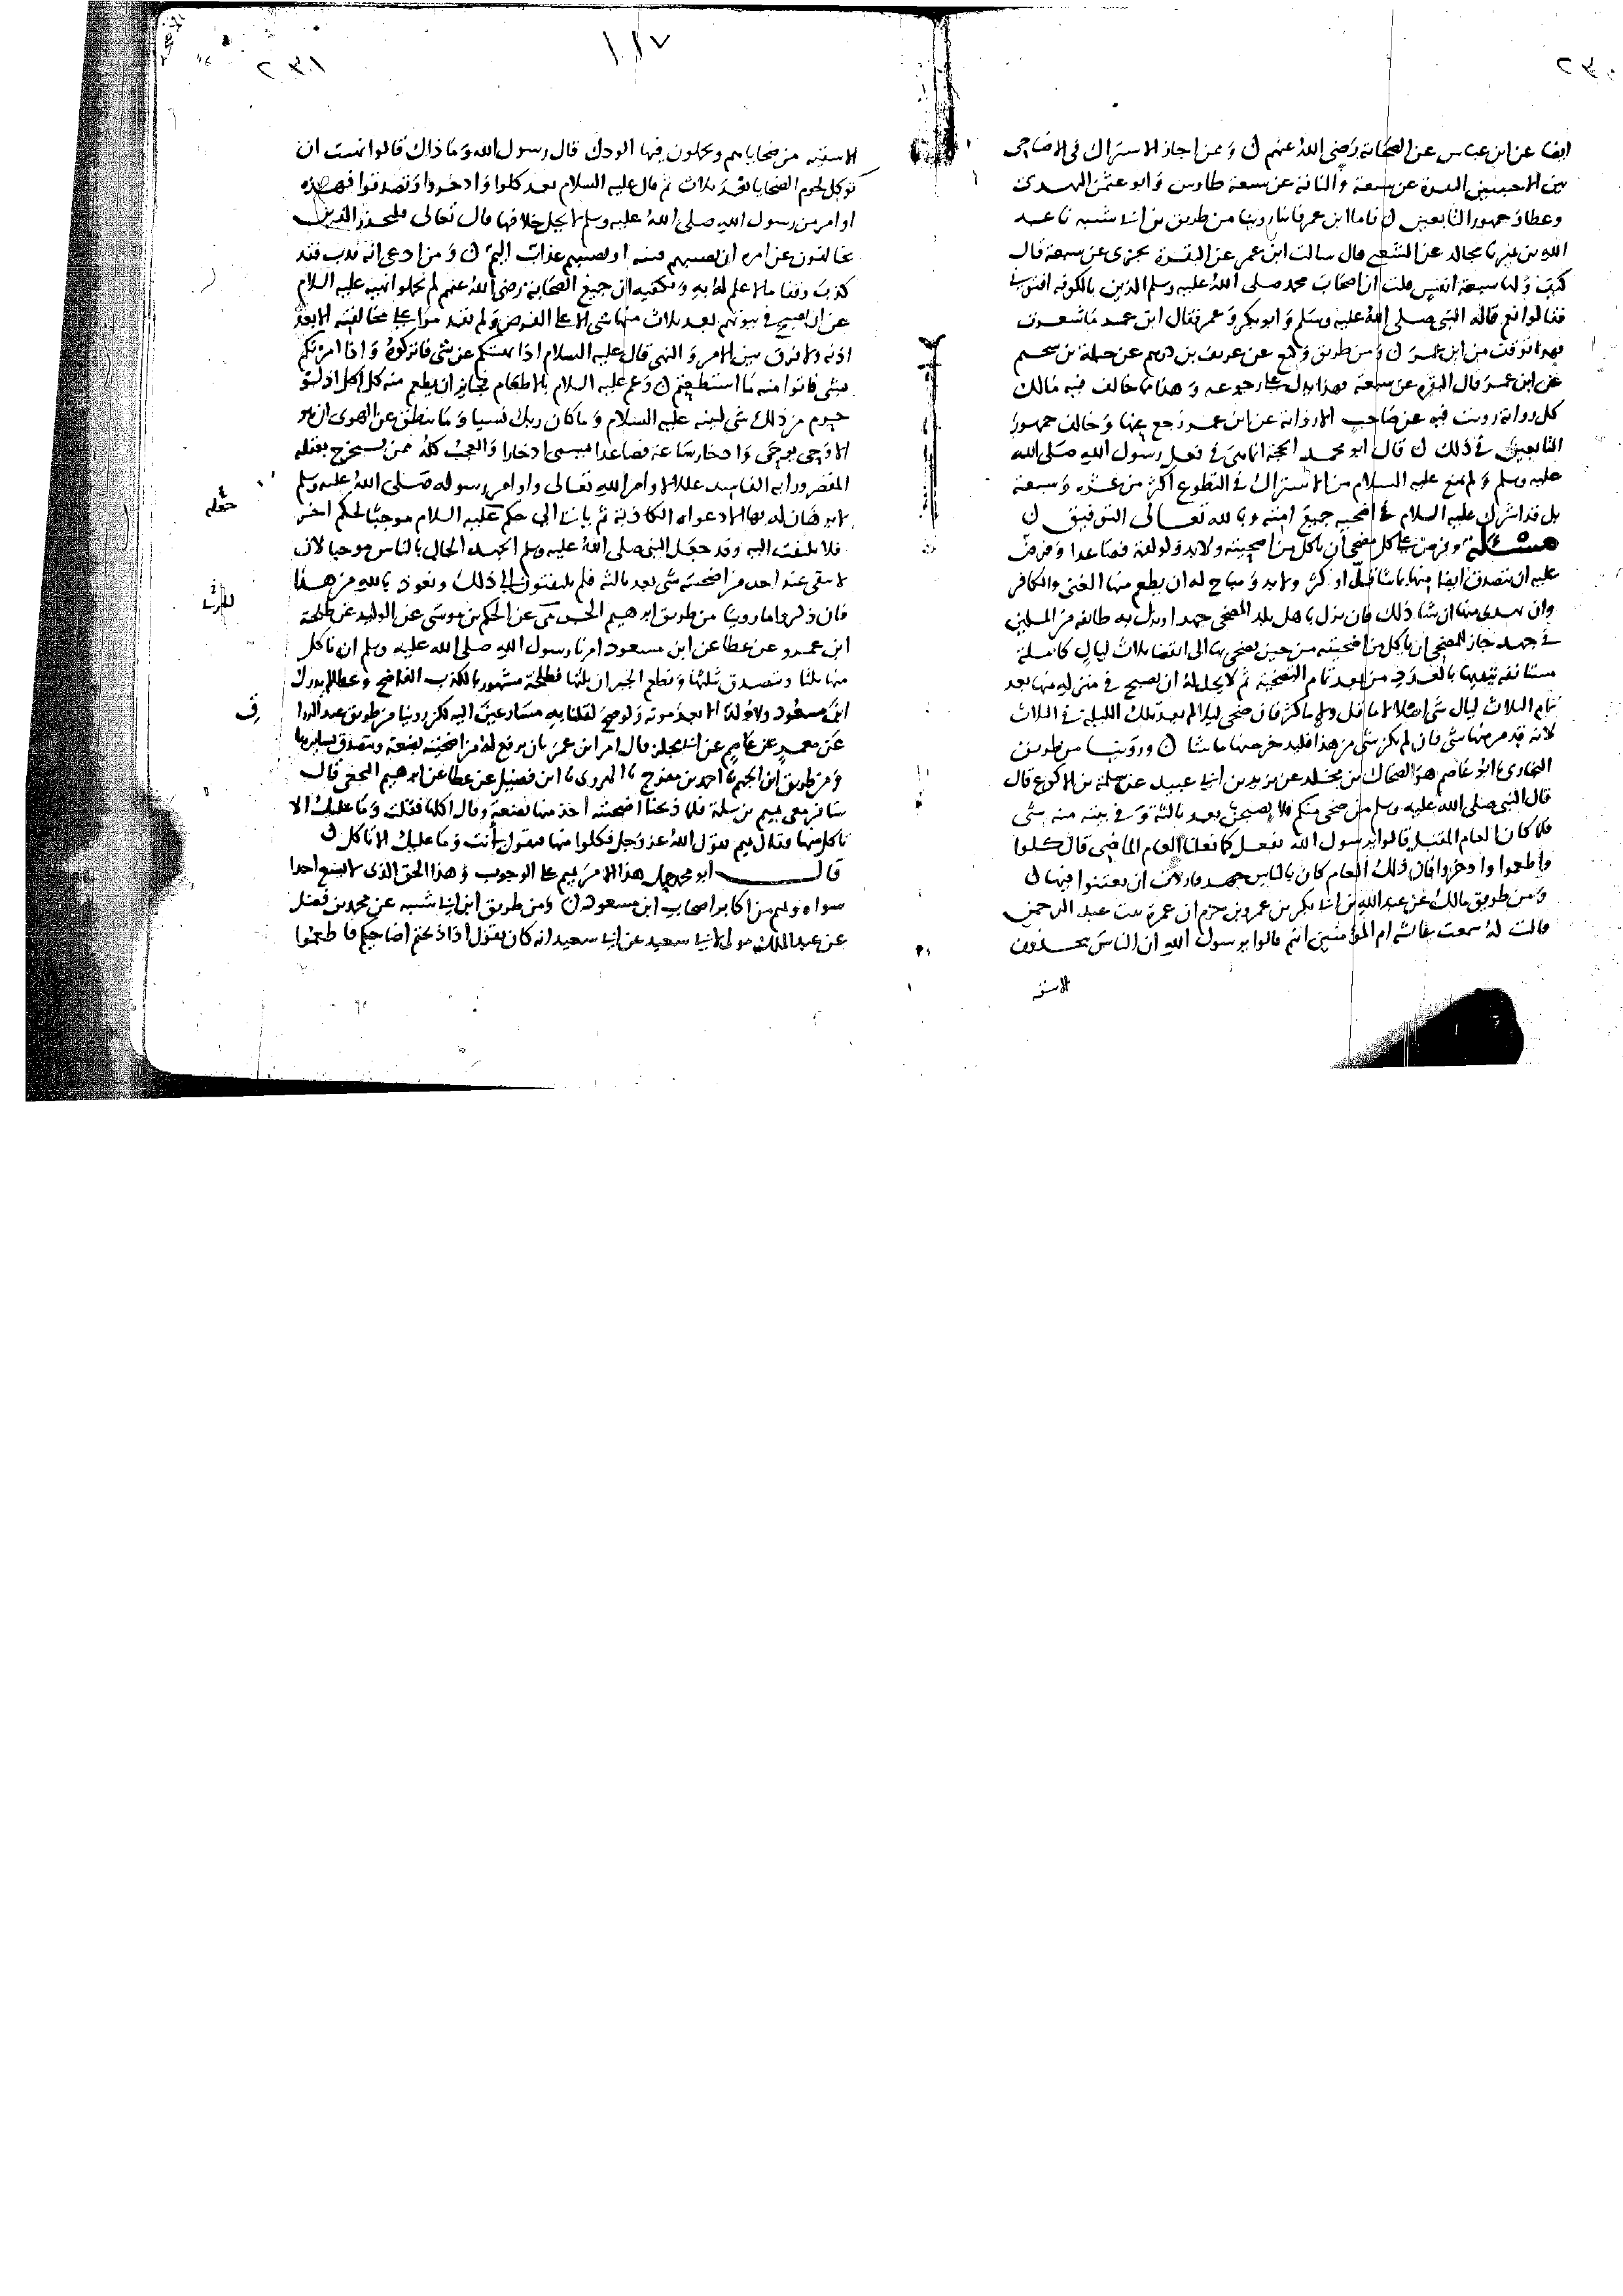 ٢٣٠
ايضا عن ابن عباس عن الصحابة رضى الله عنهم ن وعن اجاز الاشتراك فى الاضاحى
بين الاجنبيين البقرة عن سبعة والناقة عن سبعة طاوس وابو عثمن النهدى
وعطا وجمهور التابعين ن فاما ابن عمر فانا روينا من طريق بن ابى شيبه نا عبد
الله بن نمير نا مجالد عن الشعبى قال سالت ابن عمر عن البقرة تجزى عن سبعة قال
كيف ولها سبعة انفس قلت ان اصحاب محمد صلى الله عليه وسلم الذين بالكوفه افتونى
فقالوا نعم قاله النبى صلى الله عليه وسلم وابو بكر وعمر فقال ابن عمر ما شعرت
فهذا توقف من ابن عمر ن ومن طريق وكيع عن عريف بن درهم عن جبلة بن سحيم
عن ابن عمر قال البقرة عن سبعة فهذا يدل على رجوعه وهذا مما خالف فيه مالك
كل رواية رويت فيه عن صاحب الا رواية عن ابن عمر رجع عنها وخالف جمهور
التابعين فى ذلك ن قال ابو محمد الحجة انما هى فى فعل رسول الله صلى الله
عليه وسلم ولم يمنع عليه السلام من الاشتراك فى التطوع اكثر من عشرة وسبعة
بل قد اشرك عليه السلام فى اضحيه جميع امته وبالله تعالى التوفيق ن
مسئلة وفرض على كل مضحى ان ياكل من اضحيته ولابد ولو لقمة فصاعدا وفرض
عليه ان يتصدق ايضا منها بما شا قل او كثر ولابد ومباح له ان يطعم منها الغنى والكافر
وان يهدى منها ان شا ذلك فان نزل باهل بلد المضحى جهد او نزل به طائفة من المسلمين
فى جهد جاز للمضحى ان ياكل من اضحيته من حين يضحى بها الى انقضا ثلاث ليال كاملة
مستانفه يبتديها بالعدد من بعد تمام التضحية ثم لا يحل له ان يصبح فى منزله منها بعد
تمام الثلاث ليال شى اصلا لا ما قل ولا ما كثر فان ضحى ليلا لم يعد تلك الليلة فى الثلاث
لانه قد مر منها شى فان لم يكن شى من هذا فليدخر منها ما شا ن وروينا من طريق
البخارى نا ابو عاصم هو الضحاك بن مخلد عن يزيد بن ابى عبيد عن سلمة بن الاكوع قال
قال النبى صلى الله عليه وسلم من ضحى منكم فلا يصبحن بعد ثالثة وفى بيته منه شى
فلما كان العام المقبل قالوا يرسول الله نفعل كما فعلنا العام الماضى قال كلوا
واطعموا وادخروا فان ذلك العام كان بالناس جهد فاردت ان يعينوا فيها ن
ومن طريق مالك عن عبد الله بن ابى بكر بن عمرو بن حزم ان عمرة بنت عبد الرحمن
قالت له سمعت عائشه ام المؤمنين انهم قالوا يرسول الله ان الناس يتخذون
الاسقيه
١١٧
٢٣١
الاسقيه من ضحاياهم ويحملون فيها الودك قال رسول الله وما ذاك قالوا نهيت ان
توكل لحوم الضحايا بعد ثلاث ثم قال عليه السلام بعد كلوا وادخروا وتصدقوا فهذه
اوامر من رسول الله صلى الله عليه وسلم لا يحل خلافها قال تعالى فليحذر الذين
يخالفون عن امره ان تصيبهم فتنه او يصيبهم عذاب اليم ن ومن ادعى انه ندب فقد
كذب وقفا ما لا علم له به ويكفيه ان جميع الصحابة رضى الله عنهم لم يحملوا نهيه عليه السلام
عن ان يصبح فى بيوتهم بعد ثلاث منها شى الا على الفرض ولم يقدموا على مخالفته الا بعد
اذنه ولا فرق بين الامر والنهى قال عليه السلام اذا نهيتكم عن شى فاتركوه واذا امرتكم
بشى فاتوا منه ما استطعتم ن وعم عليه السلام بالاطعام فجائز ان يطعم منه كل اكل اذ لو
حرم من ذلك شى لبينه عليه السلام وما كان ربك نسيا وما ينطق عن الهوى ان هو
الا وحى يوحى وادخار ساعة فصاعدا يسمى ادخارا والعجب كله ممن يستخرج بعقله
القصر ورايه الفاسد عللا لاوامر الله تعالى واوامر رسوله صلى الله عليه وسلم
لا برهان له بها الا دعواه الكاذبة ثم ياتى الى حكم عليه السلام موجبا لحكم اخر
فلا يلتفت اليه وقد جعل النبى صلى الله عليه وسلم الجهد الحال بالناس موجبا لان
لا يبقى عند احد من اضحيته شى بعد ثالثه فلم يلتفتوا الى ذلك ونعوذ بالله من هذا
فان ذكروا ما روينا من طريق ابرهيم الحربى عن الحكم بن موسى عن الوليد عن طلحة
ابن عمرو عن عطا عن ابن مسعود امرنا رسول الله صلى الله عليه وسلم ان ناكل
منها ثلثا ونتصدق بثلثها ونطعم الجيران ثلثها فطلحة مشهور بالكذب الفاضح وعطا لم يدرك
ابن مسعود ولا ولد الا بعد موته ولو صح لقلنا به مسارعين اليه لكن روينا من طريق عبد الرزاق
عن معمر عن عاصم عن ابى مجلز قال امر ابن عمر بان يرفع له من اضحيته بضعة ويتصدق بسايرها
ومن طريق ابن الجهم نا احمد بن فضيل عن عطا عن ابرهيم النخعى قال
سافر معى تميم بن سلمة فلما ذبحنا اضحيته اخذ منها بضعة وقال اكلها فقلت وما عليك الا
تاكل منها فقال تميم يقول الله عز وجل فكلوا منها فتقول انت وما عليك الا تاكل ن
قال ابو محمد حمل هذا الامر تميم على الوجوب وهذا الحق الذى لا يسع احدا
سواه وتميم من اكابر اصحاب ابن مسعود ن ومن طريق ابن ابى شيبه عن محمد بن فضيل
عن عبد الملك مولى ابى سعيد عن ابى سعيد انه كان يقول اذا ذبحتم اضاحيكم فاطعموا